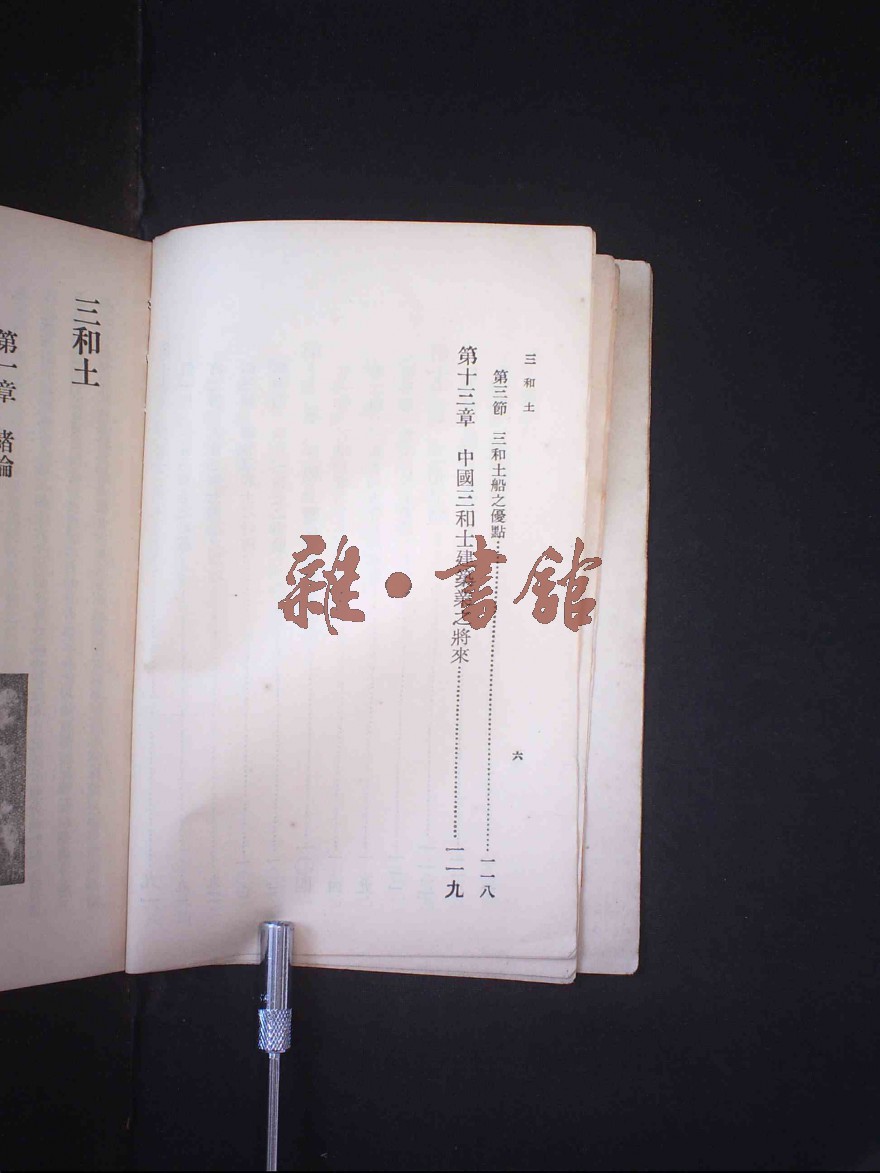 三和土
第三節　三和土船之優點……………………一一八
第十三章　中國三和土建築業之將來……………………一一九
六
三和土
第一章　緒論
雜·書館